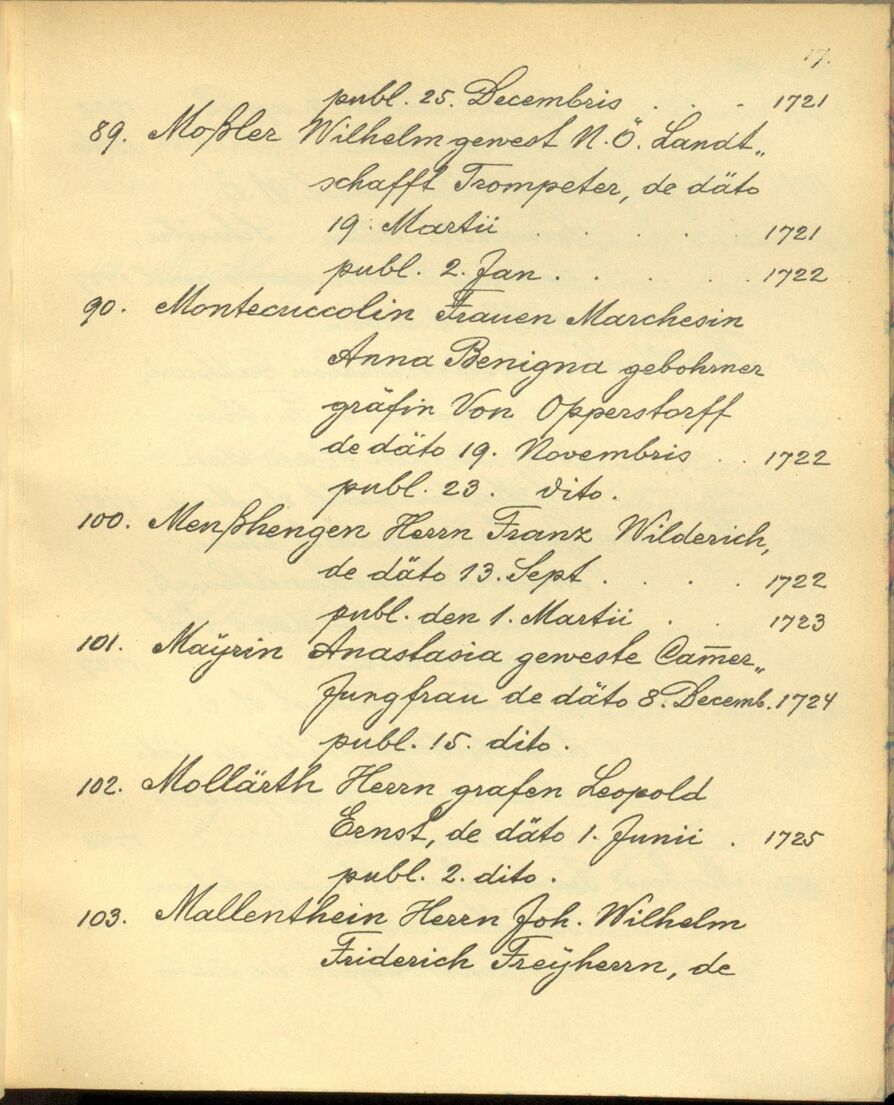 17.
publ. 25. Decembris . . . 1721
89. Moßler Wilhelm gewest N. Ö. Landt„
schafft Trompeter, de däto
19. Martii . . . 1721
publ. 2. Jan . . . . 1722
90. Montecuccolin Frauen Marchesin
Anna Benigna gebohrner
gräfin Von Opperstorff
de däto 19. Novembris . . 1722
publ. 23. dito.
100. Menßhengen Herrn Franz Wilderich,
de däto 13. Sept . . . . 1722
publ. den 1. Martii . . 1723
101. Maÿrin Anastasia geweste Cam̅er„
Jungfrau de däto 8. Decemb. 1724
publ. 15. dito.
102. Mollärth Herrn grafen Leopold
Ernst, de däto 1. Junii . 1725
publ. 2. dito.
103. Mallenthein Herrn Joh. Wilhelm
Friderich Freÿherrn, de